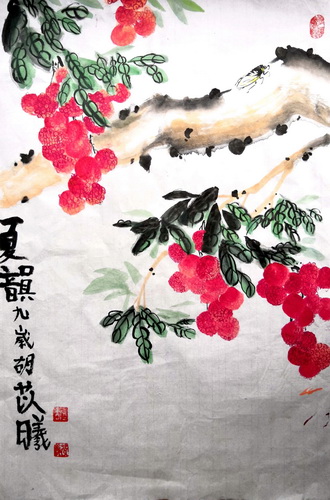 夏韻九歲胡苡曦